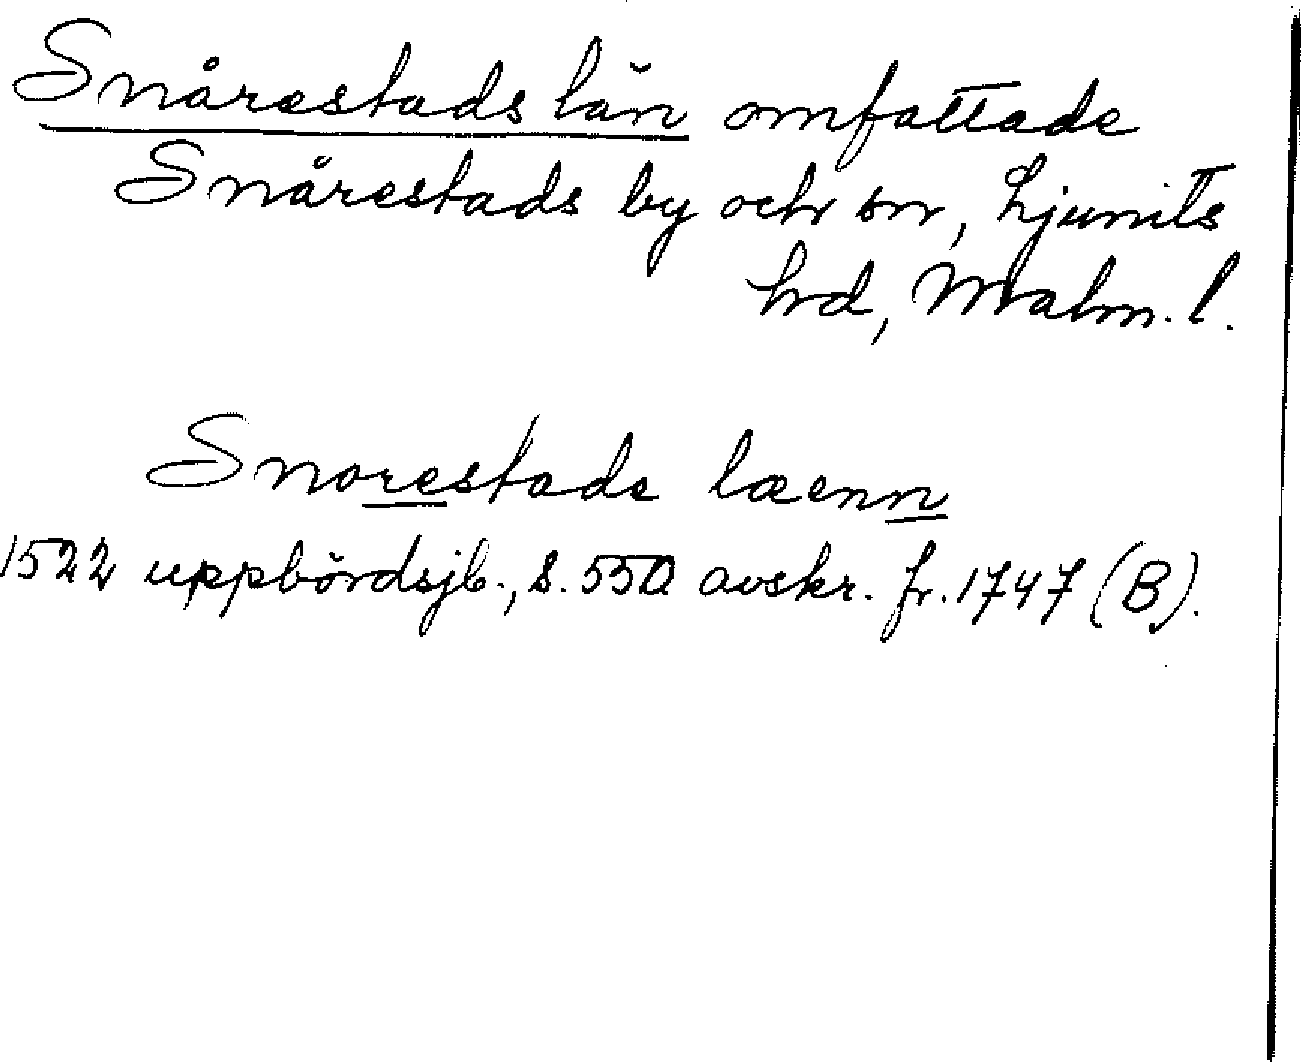 Snårestads län omfattade
Snårestads by och sn, Ljunits
hd, Malm. l.
Snorestade læenn
1522 uppbördsjb., s. 550 avskr. fr. 1747 (B).